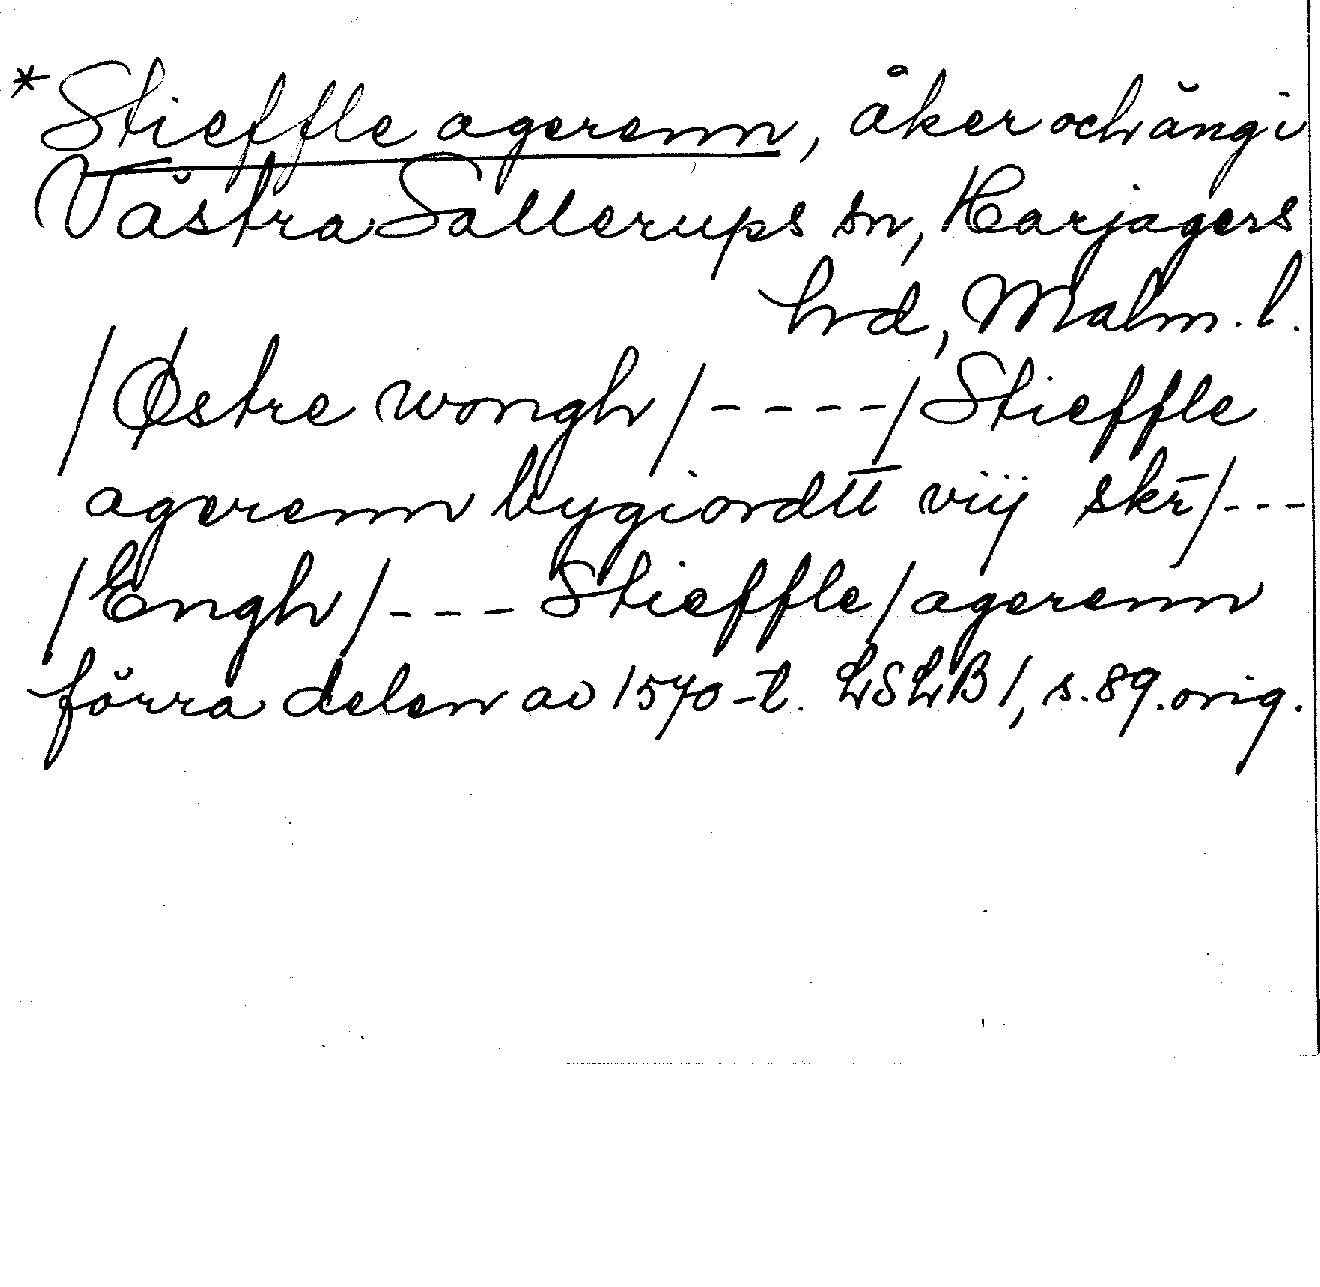 *Stieffle agerenn, åker och äng i
Västra Sallerups sn, Harjagers
hd, Malm. l.
/Østre wongh/----/Stieffle
agerenn bygiordtt viij skr̄/---
/Engh/--- Stieffle/agerenn
förra delen av 1570-t. LSLB 1, s. 89. orig.